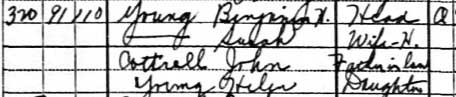 320 91 110 Young Benjamin H. Head O
—— Sarah Wife-H.
Cottrell John Father in law
Young Helen Daughter